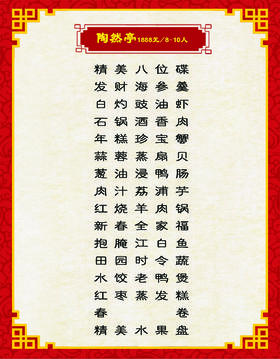 陶然亭1888元/8-10人
精美八位碟
发财海參羹
白灼豉油虾
石锅酒香肉
年糕珍宝蟹
蒜蓉蒸扇贝
葱油浸鸭肠
肉汁荔浦芋
红烧羊肉锅
新春全家福
抱腌江白鱼
田园时令蔬
水饺老鸭煲
红枣蒸发糕
春卷
精美水果盘